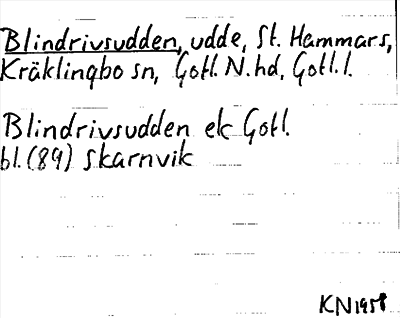 Blindrivsudden, udde, St. Hammars,
Kräklingbo sn, Gotl. N. hd, Gotl. l.
Blindrivsudden ek Gotl.
bl. (89) Skarnvik
KN 1958